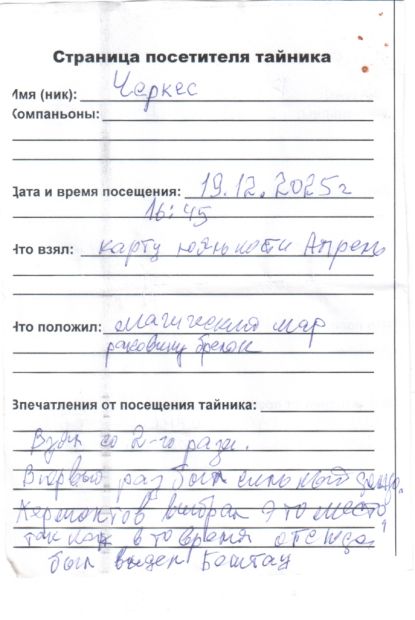 Страница посетителя тайника
Имя (ник): Черкес
Компаньоны:
Дата и время посещения: 19.12.2025г
16:45
Что взял: карту Апрель
Что положил: магический шар
раковину брелок
Впечатления от посещения тайника:
Взял со 2-го раза.
Впервый раз был сильный дождь.
Лермонтов выбрал это место,
так как в то время отсюда
был виден Бештау